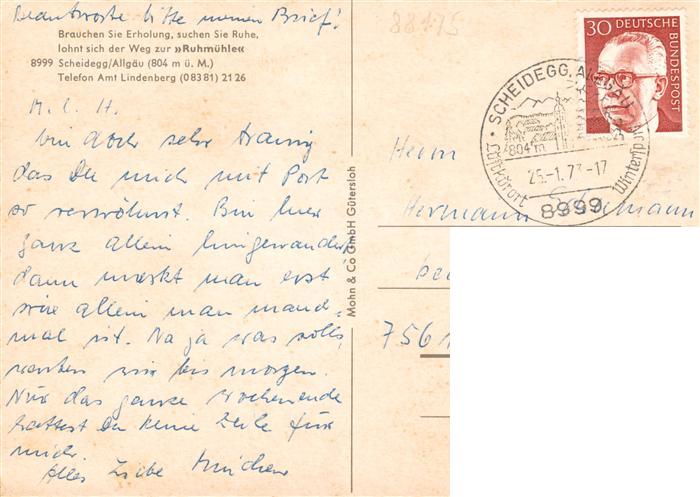 Beantworte bitte meinen Brief!
Brauchen Sie Erholung, suchen Sie Ruhe,
lohnt sich der Weg zur »Ruhmühle«
8999 Scheidegg/Allgäu (804 m ü. M.)
Telefon Amt Lindenberg (08381) 2126
M. l. H.
bin doch sehr traurig
das Du mich mit Post
so verwöhnst. Bin hier
ganz allein hingewandert
dann merkt man erst
wie allein man manch-
mal ist. Na ja was solls,
warten wir bis morgen.
Nur das ganze Wochenende
hattest Du keine Zeile für
mich.
Alles Liebe
Mohn & Co GmbH Gütersloh
88175
30 DEUTSCHE BUNDESPOST
SCHEIDEGG, ALLGÄU
804 m
25.-1.73-17
Luftkurort
Wintersp
8999
Herrn
Hermann
756